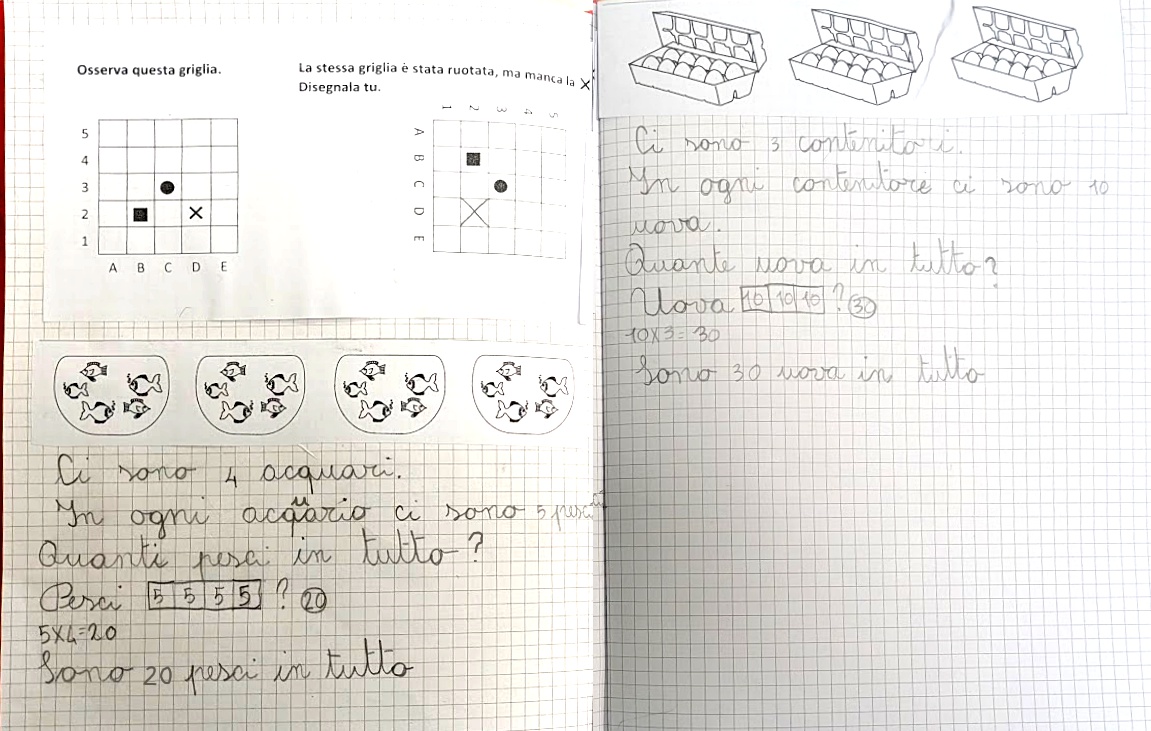 Osserva questa griglia.
5
4
3
2
1
A B C D E
La stessa griglia è stata ruotata, ma manca la ×
Disegnala tu.
1 2 3 4 5
A
B
C
D
E
Ci sono 4 acquari.
In ogni acquario ci sono 5 pesci
Quanti pesci in tutto?
Pesci 5 5 5 5 ? 20
5X4=20
Sono 20 pesci in tutto
Ci sono 3 contenitori.
In ogni contenitore ci sono 10
uova.
Quante uova in tutto?
Uova 10 10 10 ? 30
10X3=30
Sono 30 uova in tutto